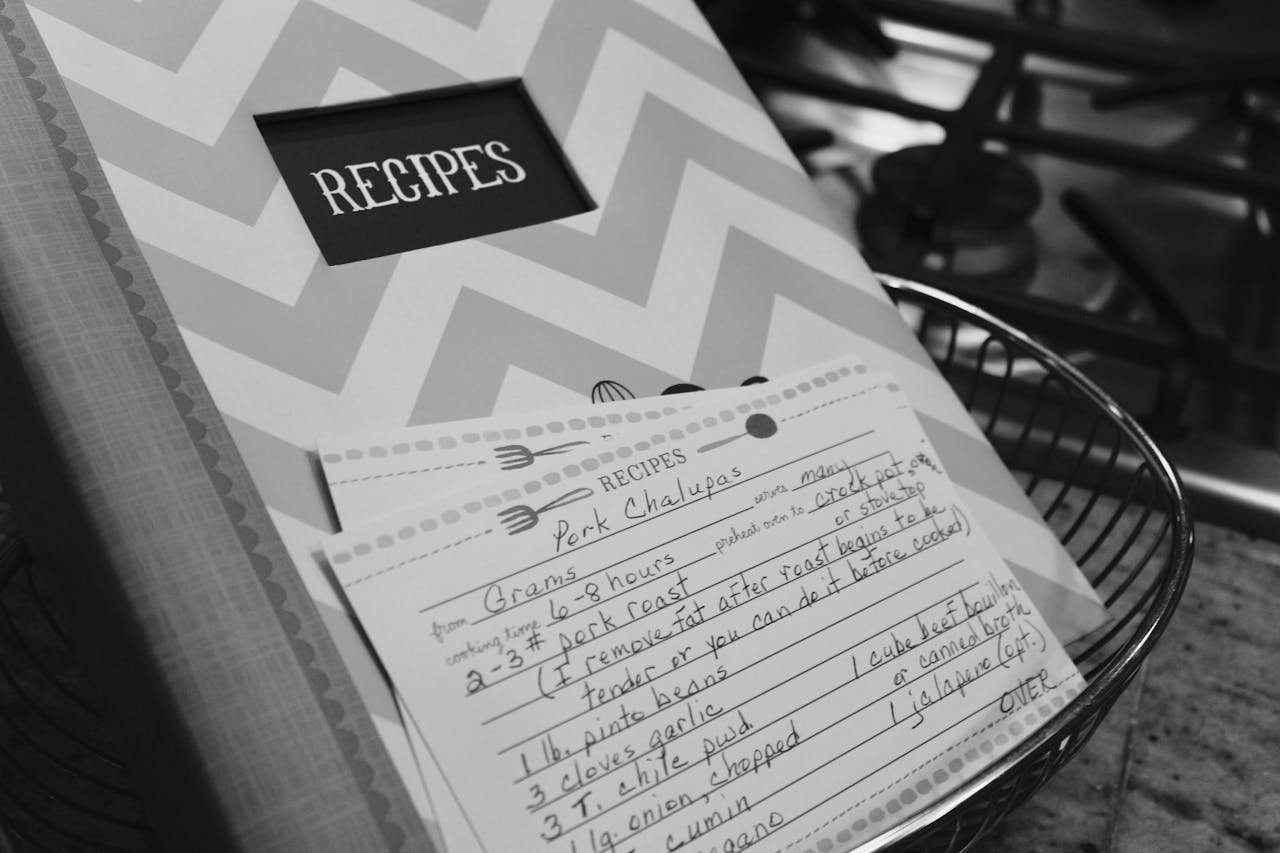 RECIPES
RECIPES
Pork Chalupas
from Grams serves many
cooking time 6-8 hours preheat oven to crock pot, oven
or stovetop
2-3 # pork roast
(I remove fat after roast begins to be
tender or you can do it before cooked)
1 lb. pinto beans
3 cloves garlic 1 cube beef bouillon
3 T. chile pwd. or canned broth
1 lg. onion, chopped 1 jalapeno (opt.)
cumin OVER